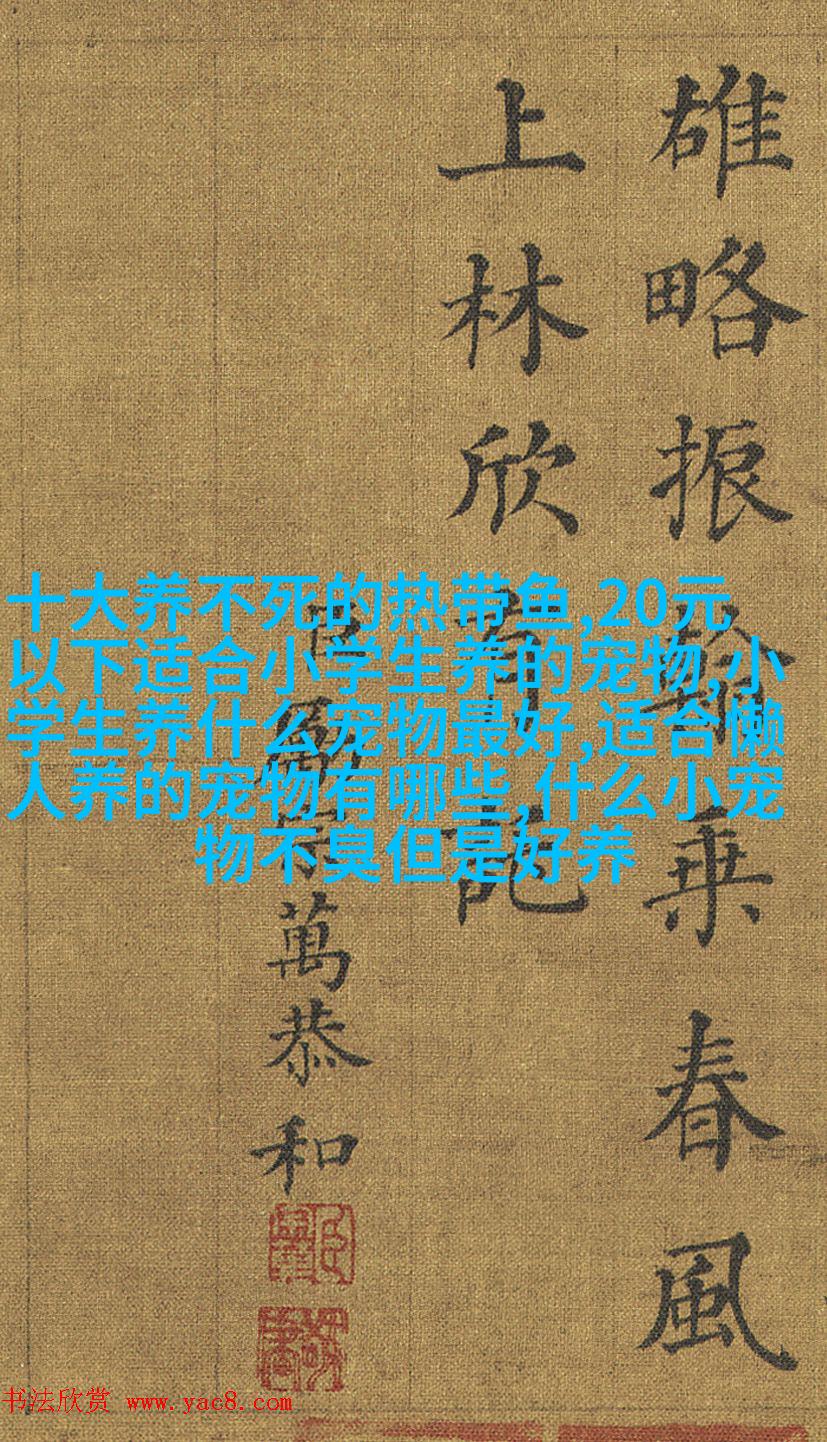 雄略振乘春風
上林欣有記
臣勵宗萬恭和
十大养不死的热带鱼,20元
以下适合小学生养的宠物,小
学生养什么宠物最好,适合懒
人养的宠物有哪些,什么小宠
物不臭但是好养
书法欣赏 www.yac8.com